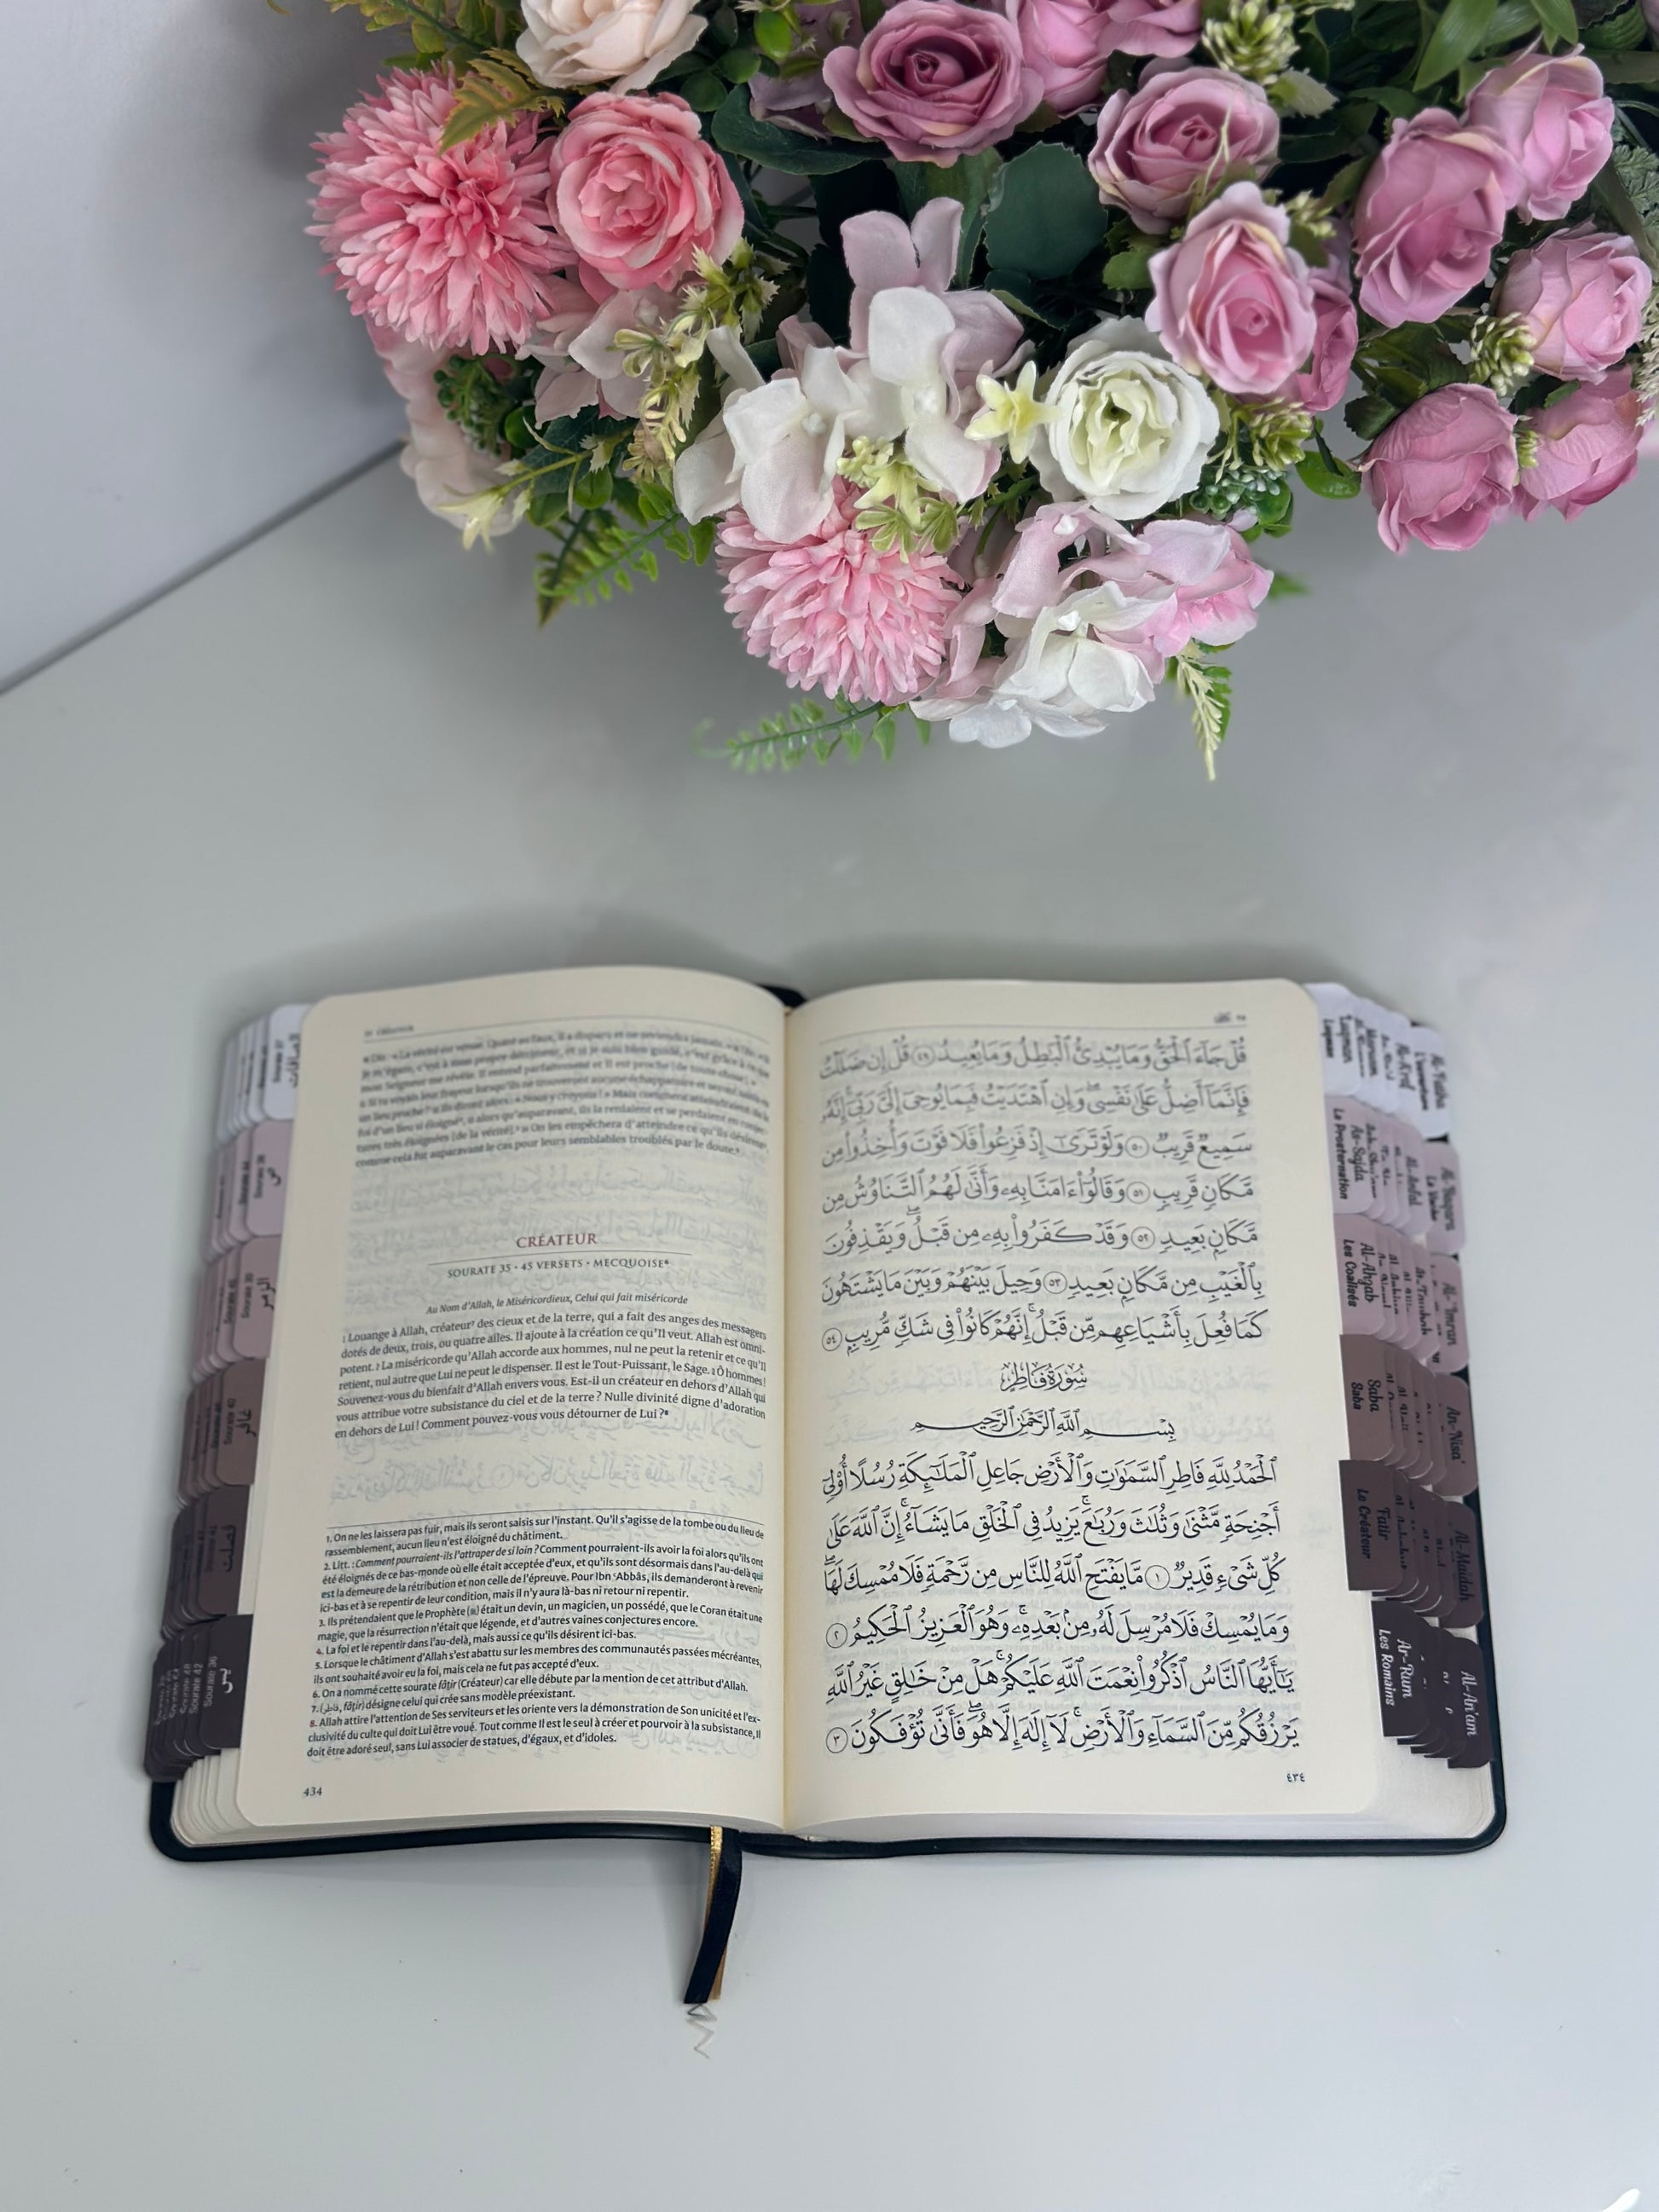 35 CRÉATEUR
« Dis : « La vérité est venue. Quant au faux, il a disparu et ne reviendra jamais.
mon Seigneur me révèle. Il entend parfaitement et Il est proche [de toute chose]. »
un lieu proche¹. Ils diront alors : « Nous y croyons ! » Mais comment
foi d'un lieu si éloigné², alors qu'auparavant, ils la reniaient et se perdaient en conjec-
tures très éloignées [de la vérité]³. On les empêchera d'atteindre ce qu'ils désirent⁴,
comme cela fut auparavant le cas pour leurs semblables troublés par le doute.⁵
CRÉATEUR
SOURATE 35 • 45 VERSETS • MECQUOISE⁶
Au Nom d'Allah, le Miséricordieux, Celui qui fait miséricorde
1 Louange à Allah, créateur⁷ des cieux et de la terre, qui a fait des anges des messagers
dotés de deux, trois, ou quatre ailes. Il ajoute à la création ce qu'Il veut. Allah est omni-
potent. 2 La miséricorde qu'Allah accorde aux hommes, nul ne peut la retenir et ce qu'Il
retient, nul autre que Lui ne peut le dispenser. Il est le Tout-Puissant, le Sage. 3 Ô hommes !
Souvenez-vous du bienfait d'Allah envers vous. Est-il un créateur en dehors d'Allah qui
vous attribue votre subsistance du ciel et de la terre ? Nulle divinité digne d'adoration
en dehors de Lui ! Comment pouvez-vous vous détourner de Lui ?⁸
1. On ne les laissera pas fuir, mais ils seront saisis sur l'instant. Qu'il s'agisse de la tombe ou du lieu de
rassemblement, aucun lieu n'est éloigné du châtiment.
2. Litt. : Comment pourraient-ils l'attraper de si loin ? Comment pourraient-ils avoir la foi alors qu'ils ont
été éloignés de ce bas-monde où elle était acceptée d'eux, et qu'ils sont désormais dans l'au-delà qui
est la demeure de la rétribution et non celle de l'épreuve. Pour Ibn ʿAbbâs, ils demanderont à revenir
ici-bas et à se repentir de leur condition, mais il n'y aura là-bas ni retour ni repentir.
3. Ils prétendaient que le Prophète (ﷺ) était un devin, un magicien, un possédé, que le Coran était une
magie, que la résurrection n'était que légende, et d'autres vaines conjectures encore.
4. La foi et le repentir dans l'au-delà, mais aussi ce qu'ils désirent ici-bas.
5. Lorsque le châtiment d'Allah s'est abattu sur les membres des communautés passées mécréantes,
ils ont souhaité avoir eu la foi, mais cela ne fut pas accepté d'eux.
6. On a nommé cette sourate fâṭir (Créateur) car elle débute par la mention de cet attribut d'Allah.
7. (فاطر, fâṭir) désigne celui qui crée sans modèle préexistant.
8. Allah attire l'attention de Ses serviteurs et les oriente vers la démonstration de Son unicité et l'ex-
clusivité du culte qui doit Lui être voué. Tout comme Il est le seul à créer et pourvoir à la subsistance, Il
doit être adoré seul, sans Lui associer de statues, d'égaux, et d'idoles.
434
قُلْ جَاءَ ٱلْحَقُّ وَمَا يُبْدِئُ ٱلْبَٰطِلُ وَمَا يُعِيدُ ٤٩ قُلْ إِن ضَلَلْتُ
فَإِنَّمَآ أَضِلُّ عَلَىٰ نَفْسِى وَإِنِ ٱهْتَدَيْتُ فَبِمَا يُوحِىٓ إِلَىَّ رَبِّىٓ إِنَّهُۥ
سَمِيعٌ قَرِيبٌ ٥٠ وَلَوْ تَرَىٰٓ إِذْ فَزِعُوا۟ فَلَا فَوْتَ وَأُخِذُوا۟ مِن
مَّكَانٍ قَرِيبٍ ٥١ وَقَالُوٓا۟ ءَامَنَّا بِهِۦ وَأَنَّىٰ لَهُمُ ٱلتَّنَاوُشُ مِن
مَّكَانٍۭ بَعِيدٍ ٥٢ وَقَدْ كَفَرُوا۟ بِهِۦ مِن قَبْلُ ۖ وَيَقْذِفُونَ
بِٱلْغَيْبِ مِن مَّكَانٍۭ بَعِيدٍ ٥٣ وَحِيلَ بَيْنَهُمْ وَبَيْنَ مَا يَشْتَهُونَ
كَمَا فُعِلَ بِأَشْيَاعِهِم مِّن قَبْلُ ۚ إِنَّهُمْ كَانُوا۟ فِى شَكٍّ مُّرِيبٍۭ ٥٤
سُورَةُ فَاطِرٍ
بِسْمِ ٱللَّهِ ٱلرَّحْمَٰنِ ٱلرَّحِيمِ
ٱلْحَمْدُ لِلَّهِ فَاطِرِ ٱلسَّمَٰوَٰتِ وَٱلْأَرْضِ جَاعِلِ ٱلْمَلَٰٓئِكَةِ رُسُلًا أُو۟لِىٓ
أَجْنِحَةٍ مَّثْنَىٰ وَثُلَٰثَ وَرُبَٰعَ ۚ يَزِيدُ فِى ٱلْخَلْقِ مَا يَشَآءُ ۚ إِنَّ ٱللَّهَ عَلَىٰ
كُلِّ شَىْءٍ قَدِيرٌ ١ مَّا يَفْتَحِ ٱللَّهُ لِلنَّاسِ مِن رَّحْمَةٍ فَلَا مُمْسِكَ لَهَا ۖ
وَمَا يُمْسِكْ فَلَا مُرْسِلَ لَهُۥ مِنۢ بَعْدِهِۦ ۚ وَهُوَ ٱلْعَزِيزُ ٱلْحَكِيمُ ٢
يَٰٓأَيُّهَا ٱلنَّاسُ ٱذْكُرُوا۟ نِعْمَتَ ٱللَّهِ عَلَيْكُمْ ۚ هَلْ مِنْ خَٰلِقٍ غَيْرُ ٱللَّهِ
يَرْزُقُكُم مِّنَ ٱلسَّمَآءِ وَٱلْأَرْضِ ۚ لَآ إِلَٰهَ إِلَّا هُوَ ۖ فَأَنَّىٰ تُؤْفَكُونَ ٣
٤٣٤
الصافات
Sourate 37
ص
Sourate 38
الزمر
Sourate 39
غافر
Sourate 40
فصلت
يس
Sourate 36
Luqman
Luqman
As-Sajda
La Prosternation
Al-Ahzab
Les Coalisés
Saba
Saba
Fatir
Le Créateur
Ar-Rum
Les Romains
Al-Fatiha
L'ouverture
Al-Baqara
La Vache
Al-'Imran
An-Nisa'
Al-Maidah
Al-An'am